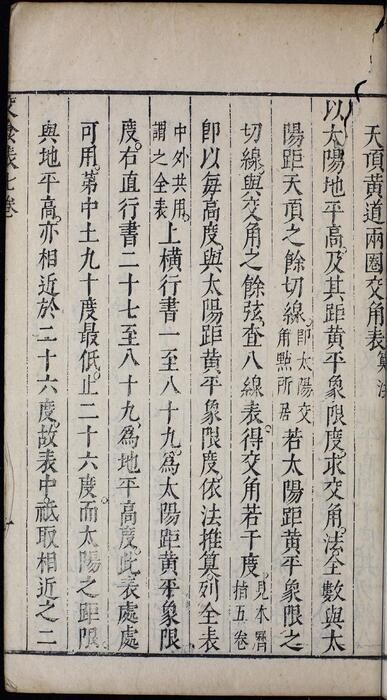 天頂黃道兩圈交角表算法
以太陽地平高及其距黃平象限度求交角法全數與太
陽距天頂之餘切線即太陽交角點所居若太陽距黃平象限之
切線與交角之餘弦查八線表得交角若干度見本曆指五卷
卽以每高度與太陽距黃平象限度依法推算列全表
中外共用謂之全表上橫行書一至八十九為太陽距黃平象限
度右直行書二十七至八十九為地平高度此表處處
可用第中土九十度最低止二十六度而太陽之距限
與地平高亦相近於二十六度故表中祗取相近之二
交食表七卷